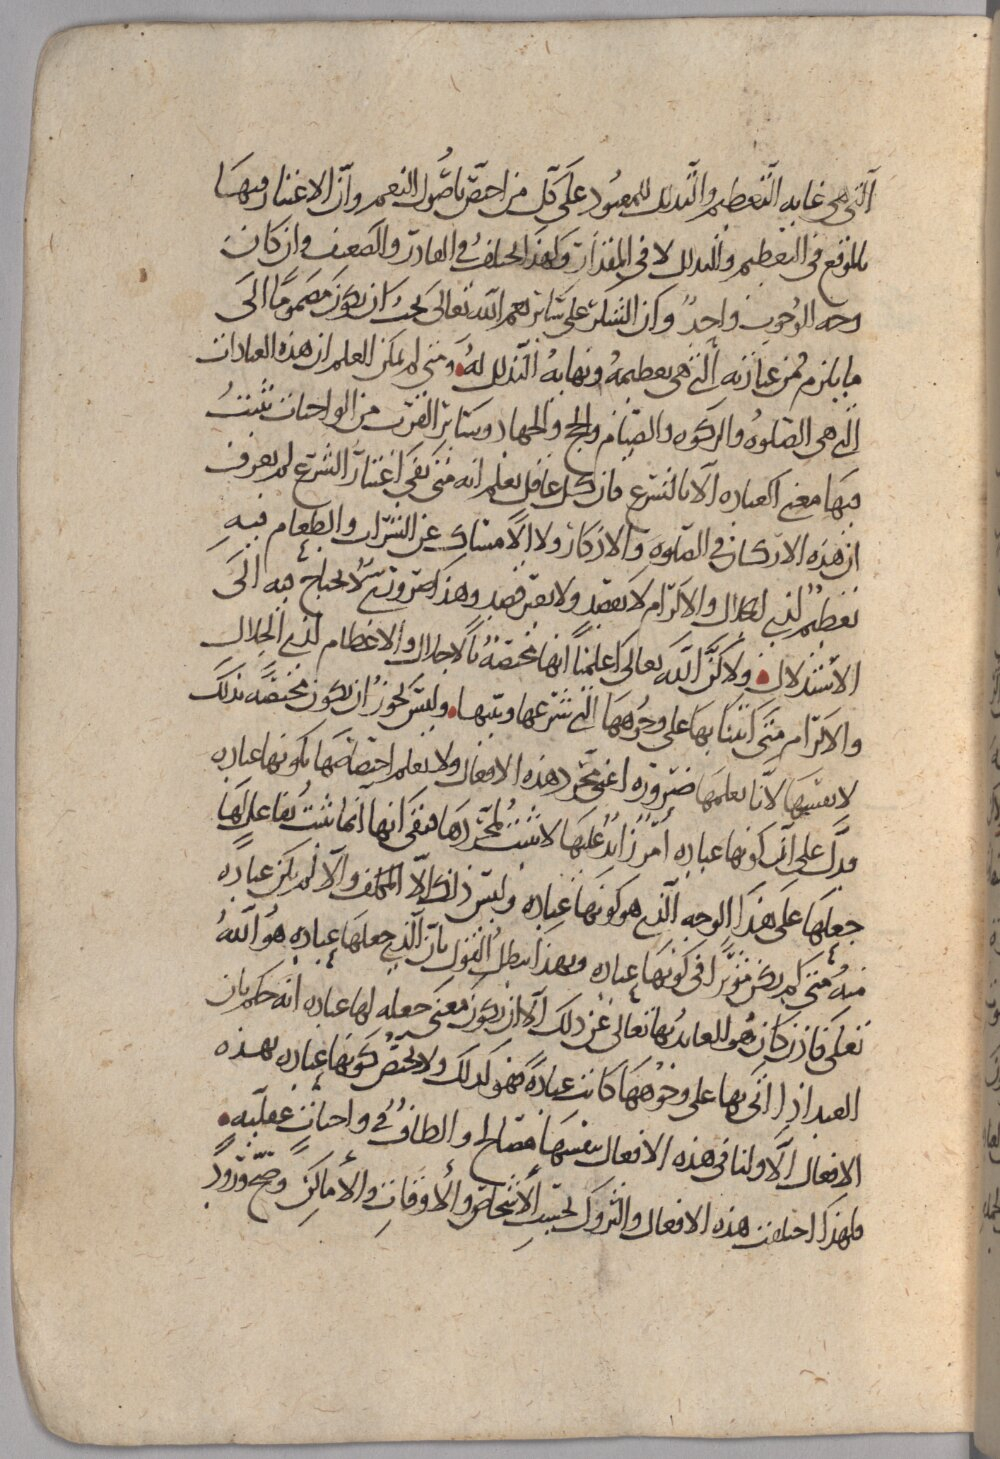 التي هي غاية التعظيم والتذلل للمعبود على كل من اختص باصول النعم وان الاعتبار فيها
بالموقع في التعظيم والتذلل لا في المقدار ولهذا اختلف في القادر والضعيف وان كان
وجه الوجوب واحد وان الشكر على سائر نعم الله تعالى يجب ان يكون مضموما الى
ما يلزم من عبادته التي هي تعظيمه ونهاية التذلل له ومتى لم يمكن العلم ان هذه العبادات
التي هي الصلوة والزكوة والصيام والحج والجهاد وسائر القرب من الواجبات يثبت
فيها معنى العباده الا بالشرع فان كل عاقل يعلم انه متى نفى اعتبار الشرع لم يعرف
ان هذه الاركان في الصلوة والاذكار ولا الامساك عن الشراب والطعام فيه
تعظيم لذي الجلال والاكرام لا بقصد ولا بغير قصد وهذا ضروري لا يحتاج فيه الى
الاستدلال ولاكن الله تعالى اعلمنا انها مختصة بالاجلال والاعظام لذي الجلال
والاكرام متى اتينا بها على وجوهها التي شرعها وبينها وليس يجوز ان يكون مختصه بذلك
لانفسها لانا نعلمها ضرورة اعني مجرد هذه الافعال ولا نعلم اختصاصها بكونها عباده
فدل على ان كونها عباده امر زائد عليها لا يثبت لمجردها فبقى انها انما تثبت بفاعل لها
جعلها على هذا الوجه الذي هو كونها عباده وليس ذلك الا المكلف والا لم يكن عباده
منه متى لم يكن مؤثرا في كونها عباده وبهذا يبطل القول بان الذي جعلها عباده هو الله
تعلى فاذن كان هو العابد بها تعالى عن ذلك الا ان يكون معنى جعله لها عباده انه حكم بان
العبد اذا اتى بها على وجوهها كانت عبادة فهو كذلك ولا يختص كونها عباده بهذه
الافعال الا ولنا في هذه الافعال بنفسها مصالح والطاف في واجبات عقليه
فلهذا اختلفت هذه الافعال والتروك بحسب الاشخاص والاوقات والاماكن وصح ورود